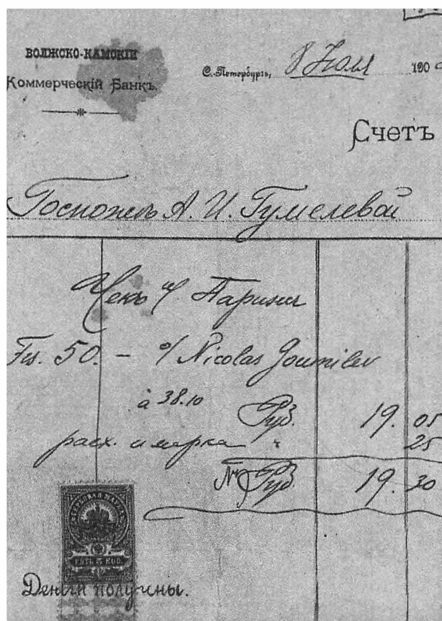 ВОЛЖСКО-КАМСКІЙ
Коммерческій Банкъ.
С.-Петербургъ, 8 Юля 190
Счетъ
Госпожѣ А. И. Гумилевой
Чекъ Парижъ
Frs. 50. — Nicolas Goumilev
à 38.10 Руб. 19. 05
расх. и марка " 25
Руб. 19. 30
ПЯТЬ 5 КОП.
Деньги получены.